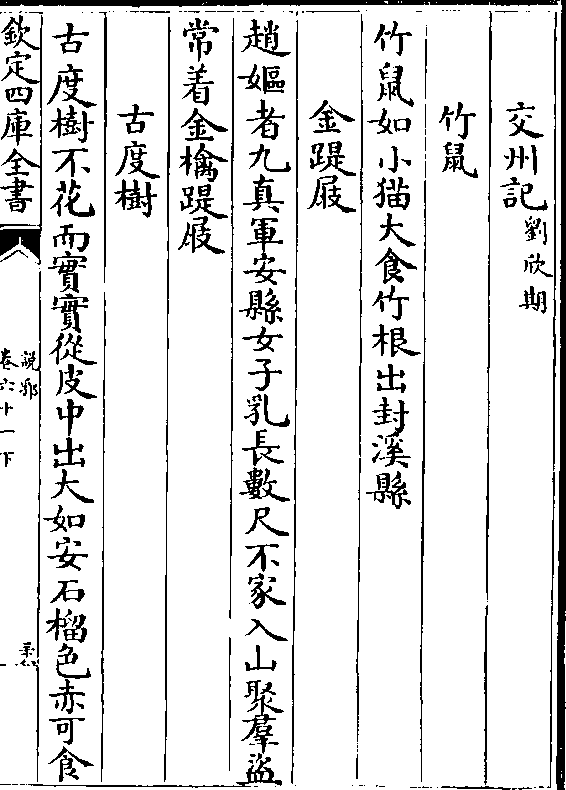 交州記劉欣期
竹鼠
竹鼠如小猫大食竹根出封溪縣
金踶屐
趙嫗者九真軍安縣女子乳長數尺不家入山聚羣盜
常着金檎踶屐
古度樹
古度樹不花而實實從皮中出大如安石榴色赤可食
欽定四庫全書
說郛
卷六十一下